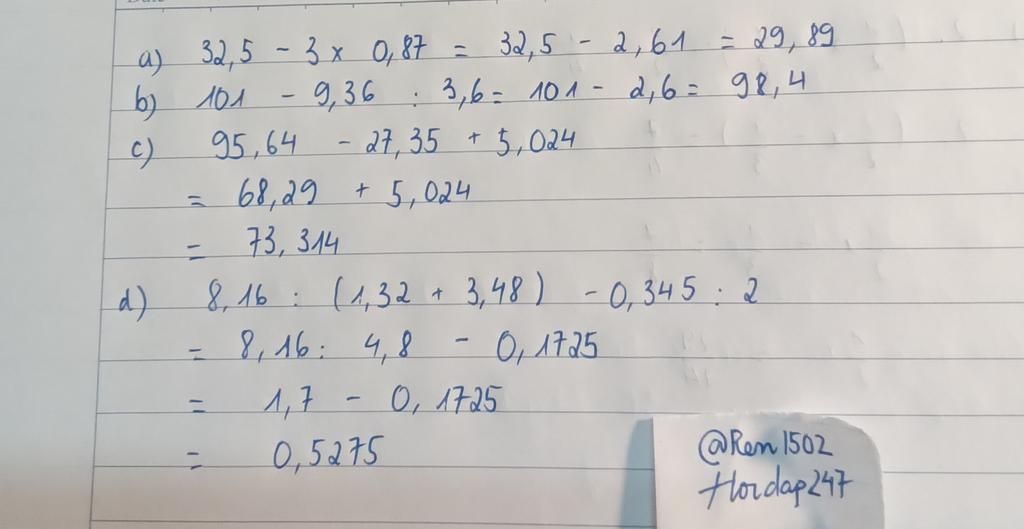 a) 32,5 - 3 x 0,87 = 32,5 - 2,61 = 29,89
b) 101 - 9,36 : 3,6 = 101 - 2,6 = 98,4
c) 95,64 - 27,35 + 5,024
= 68,29 + 5,024
= 73,314
d) 8,16 : (1,32 + 3,48) - 0,345 : 2
= 8,16 : 4,8 - 0,1725
= 1,7 - 0,1725
= 0,5275
@Ren1502